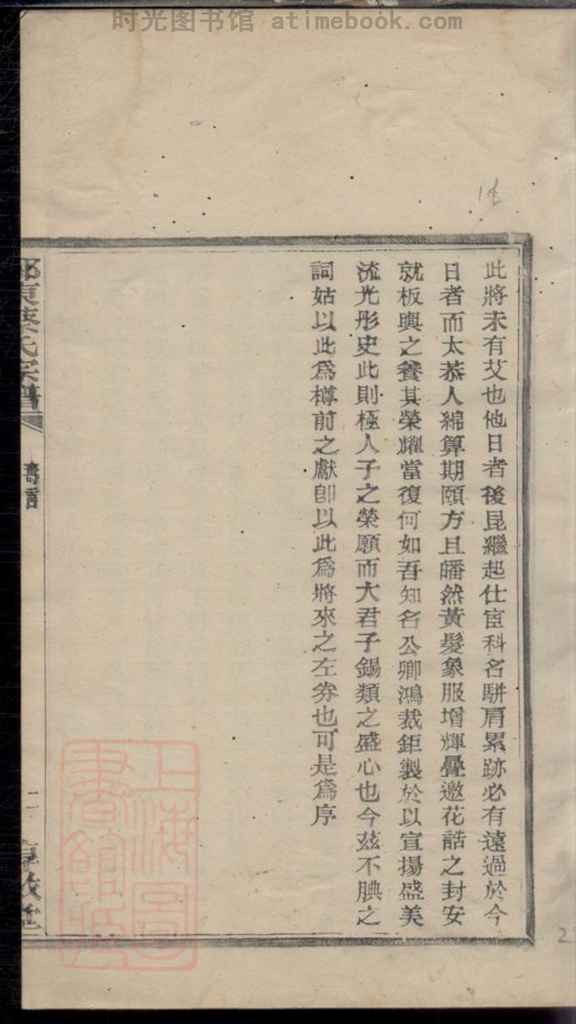 时光图书馆 atimebook.com
此將未有艾也他日者後昆繼起仕宦科名駢肩累跡必有遠過於今
日者而太恭人綿算期頤方且皤然黃髮象服增輝疊邀花誥之封安
就板輿之養其榮耀當復何如吾知名公卿鴻裁鉅製於以宣揚盛美
流光彤史此則極人子之榮願而大君子錫類之盛心也今茲不腆之
詞姑以此為樽前之獻卽以此為將來之左劵也可是為序
氏宗譜
壽言
二
上海圖書館藏